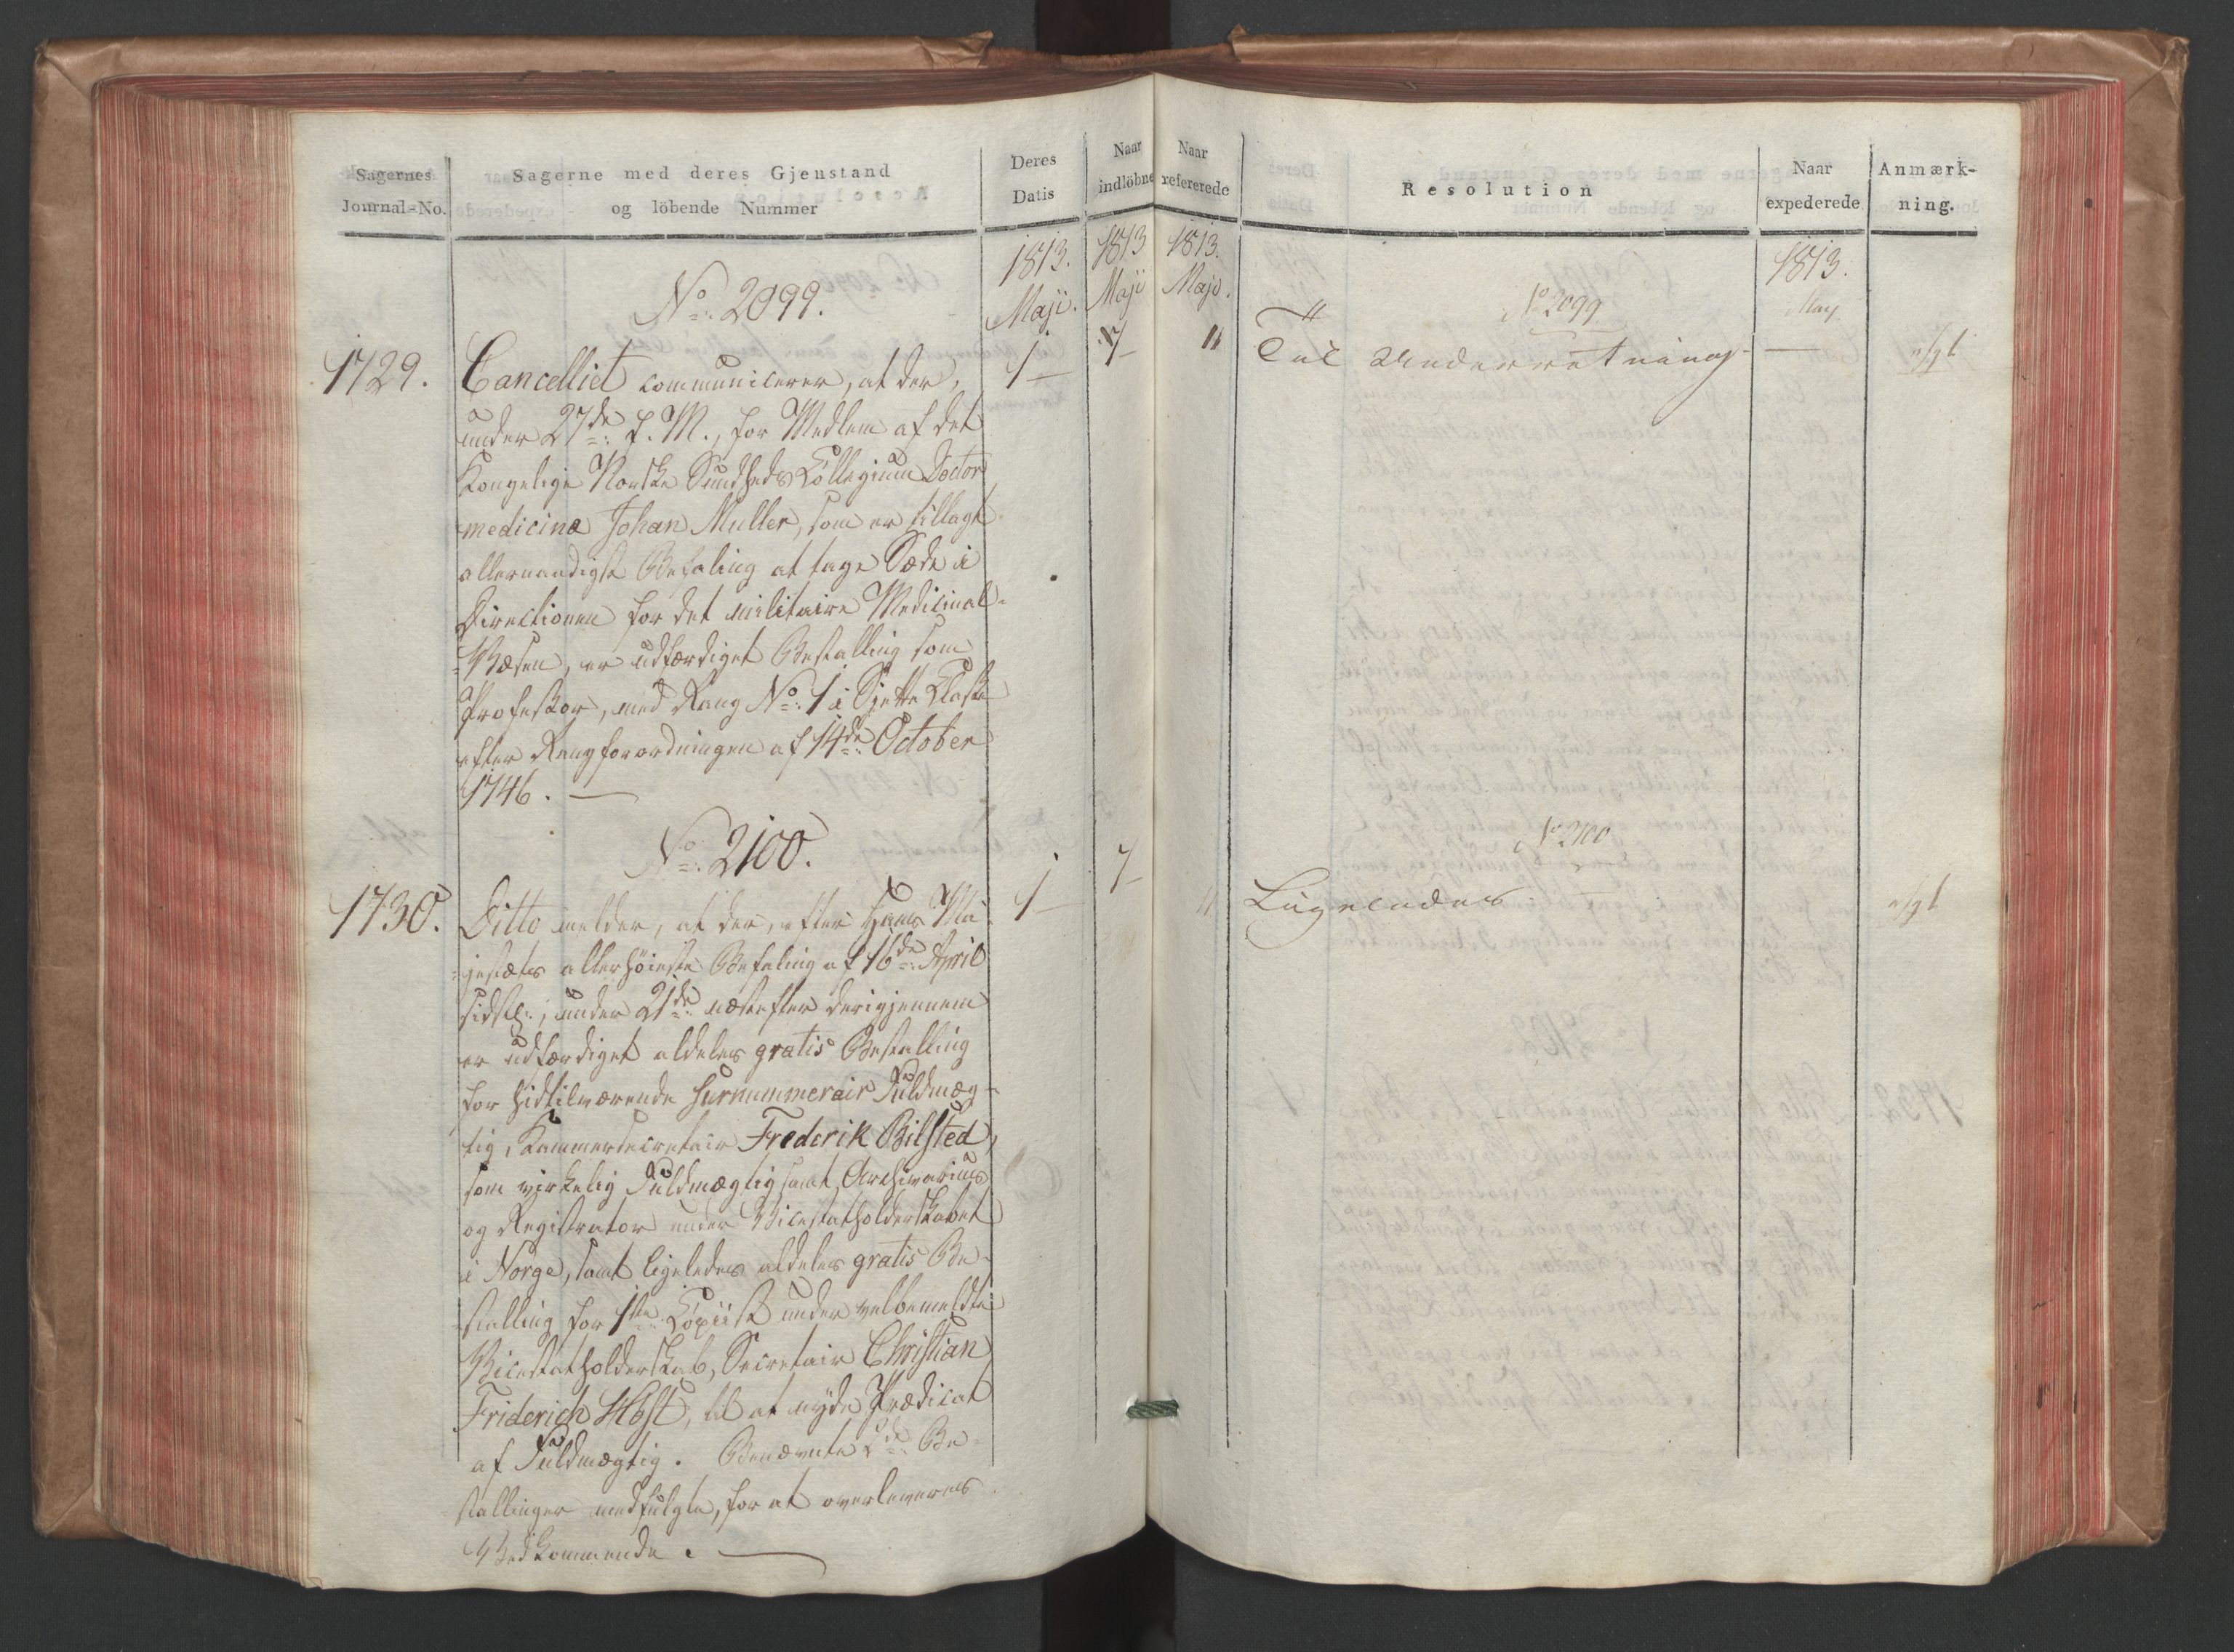 Sagernes
Journal=No.
Sagerne med deres Gjenstand
og löbende Nummer
Deres
Datis
Naar
indlöbne
Naar
refererede
Resolution
Naar
expederede
Anmærk-
ning.
1813.
Maji.
1813
Maji
1813.
Maji.
1813.
May.
No: 2099.
1729.
Cancelliet communicerer, at der,
under 27de: f. M., for Medlem af det
Kongelige Norske Sundheds Collegium Doctor
medicinæ Johan Muller, som er tillagt
allernaadigst Befaling at tage Sæde i
Directionen for det militaire Medicinal-
-Væsen, er udfærdiget Bestalling som
Professor, med Rang No: 1 i Sjette Classe
efter Rangforordningen af 14de: October
1746. —
1 —
7 —
11
No 2099
Til Underretning —
No: 2100.
1730.
Ditto melder, at der, efter Hans Ma-
-jestæts allerhöieste Befaling af 16de: April
sidstl:, under 21de: næstefter derigjennem
er udfærdiget aldeles gratis Bestalling
for hidtilværende surnummerair Fuldmæg-
tig, Kammersecretair Frederik Bilsted,
som virkelig Fuldmægtig samt Archivarius
og Registrator under Vicestatholderskabet
i Norge, samt ligeledes aldeles gratis Be-
-stalling for 1ste: Copiist under velbemeldte
Vicestatholderskab, Secretair Christian
Friderich Höst, til at nyde Prædicat
af Fuldmægtig. Benævnte 2de: Be-
stallinger medfulgte, for at overleveres
Vedkommende. —
1 —
7 —
11
No 2100
Ligeledes